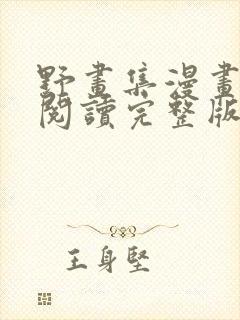 野畫集漫畫
閱讀完整版
王身堅